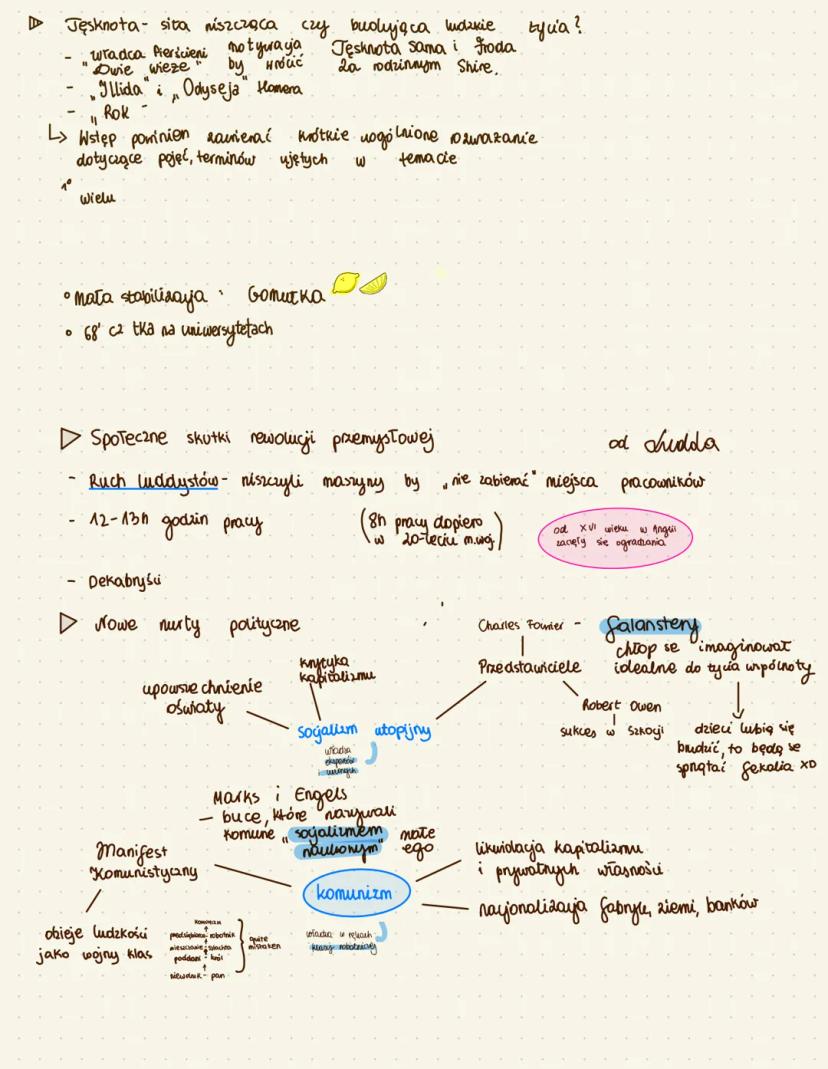 Tęsknota - siła niszcząca czy budująca ludzkie życia?
- "Władca Pierścieni motywacja Tęsknota Sama i Froda
"Dwie wieże" by wrócić za rodzinnym Shire.
- "Illida" i "Odyseja" Homera
- "Rok -
↳ Wstęp powinien zawierać krótkie uogólnione rozważanie
dotyczące pojęć, terminów ujętych w temacie
1°
wielu
• mała stabilizacja : Gomułka
• 68' cz tka na uniwersytetach
Społeczne skutki rewolucji przemysłowej
od Ludda
- Ruch luddystów - niszczyli maszyny by "nie zabierać" miejsca pracowników
- 12-13h godzin pracy
(8h pracy dopiero
w 20-leciu m.woj)
od XVI wieku w Anglii
zaczęły się ogradzania
- Dekabryści
Nowe nurty polityczne
Charles Fourier - falanstery
chłop se imaginował
idealne do życia wspólnoty
Przedstawiciele
krytyka
kapitalizmu
upowszechnienie
oświaty
Robert Owen
sukces w Szkocji
socjalizm utopijny
władza
ekspertów
i uczonych
dzieci lubią się
brudzić, to będą se
sprzątać fekalia XD
Marks i Engels
- buce, które nazywali
komune "socjalizmem małe
naukowym" ego
Manifest
Komunistyczny
likwidacja kapitalizmu
i prywatnych własności
komunizm
nacjonalizacja fabryk, ziemi, banków
obieje ludzkości
jako wojny klas
komunizm
przedsiębiorca - robotnik
mieszczanie - szlachta
poddani - król
niewolnik - pan
quite
mistaken
władza w rękach
klasy robotniczej